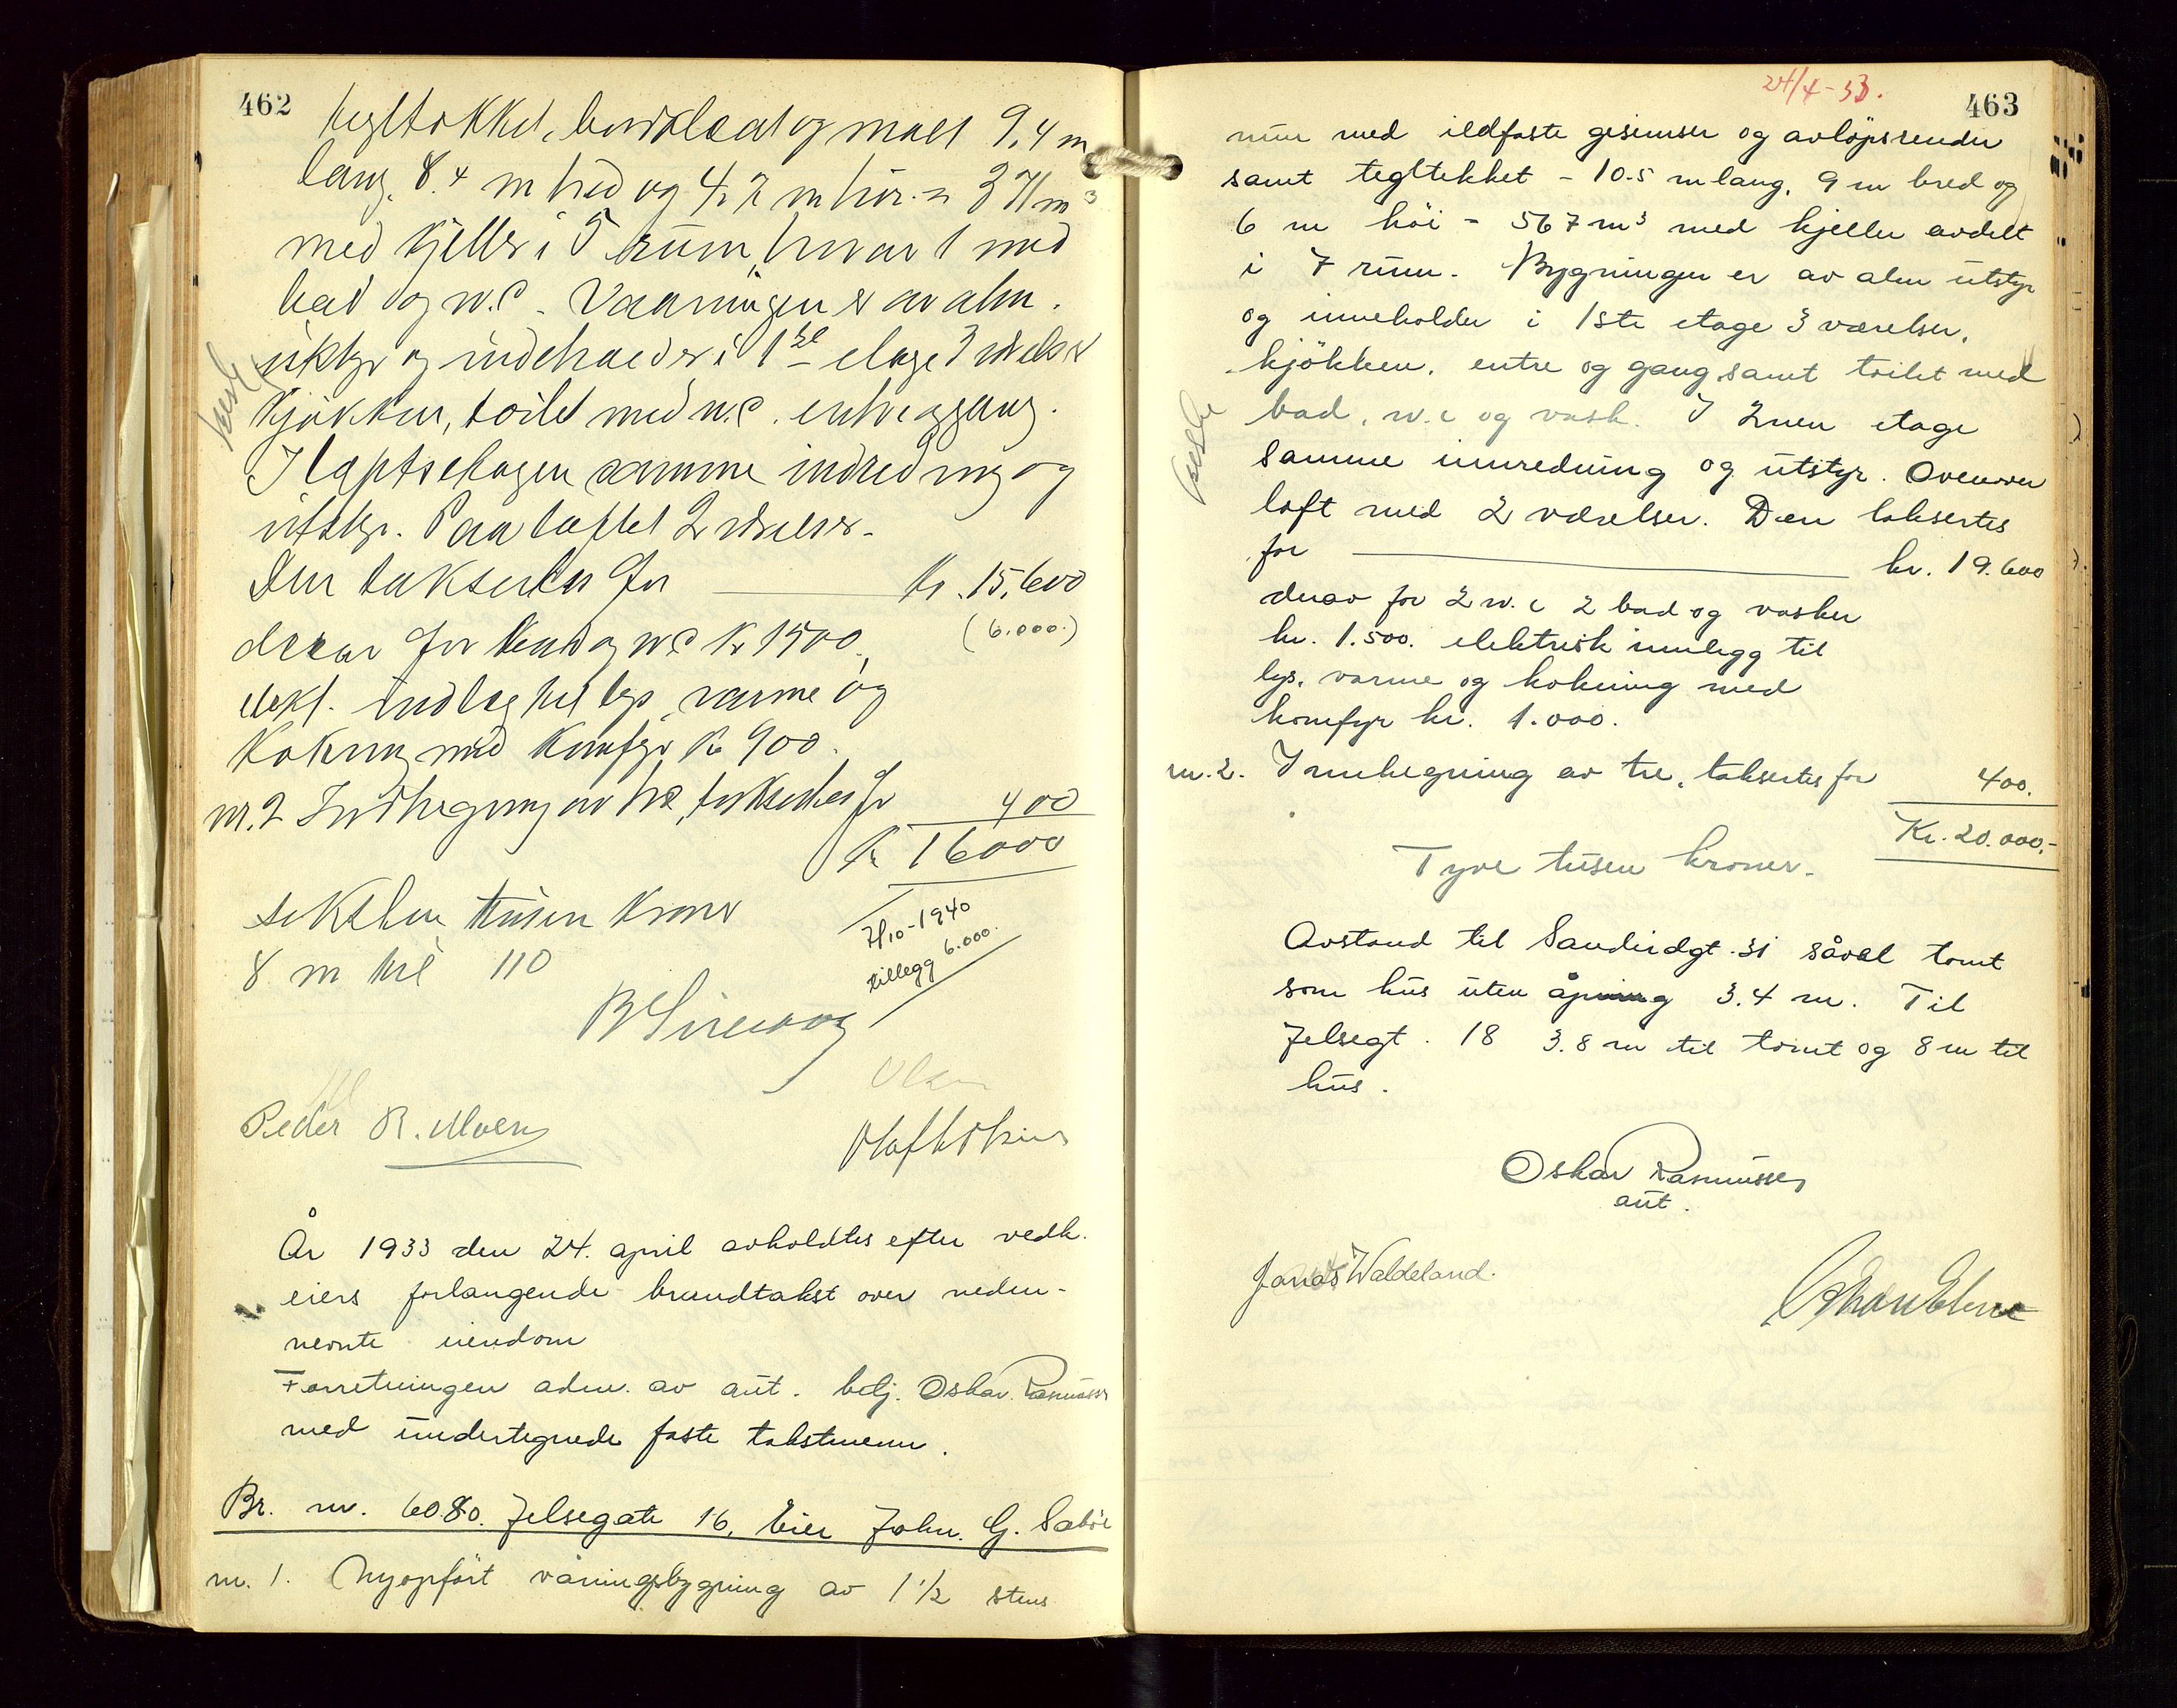 462
tegltekket, bordklædt og malt 9,4 m
lang, 8.4 m bred og 4,7 m høi = 371 m³
med kjeller i 5 rum, hvorav 1 med
bad og w.c. Vaaningen er av alm.
utstyr og indeholder i 1ste etage 3 værelser
kjøkken, toilet med w.c. entre og gang.
I loftsetagen samme indredning og
utstyr. Paa loftet 2 værelser.
Den takseres for kr. 15.600
derav for bad og w.c. kr 1500, (6.000.)
elekt. indlæg til lys, varme og
kokning med komfyr kr 900.
nr. 2 Indhegning av træ, takseres for 400
Kr 16000
seksten tusen kroner
7/10-1940
tillegg 6.000.
8 m til 110
Peder R. Moen
År 1933 den 24. april avholdtes efter vedk.
eiers forlangende brandtakst over neden-
nevnte eiendom
Forretningen adm. av aut. betj. Oskar Rasmussen
med undertegnede faste takstmenn.
Br. nr. 6080. Jelsegate 16, Eier John. G. Sabøe
nr. 1. Nyopført våningsbygning av 1 1/2 stens
24/4-33.
463
mur med ildfaste gesimser og avløpsrender
samt tegltekket - 10.5 m lang, 9 m bred og
6 m høi - 567 m³ med kjeller avdelt
i 7 rum. Bygningen er av alm utstyr
og inneholder i 1ste etage 3 værelser,
kjøkken, entre og gang samt toilet med
bad, w.c og vask. I 2nen etage
samme innredning og utstyr. Ovenover
loft med 2 værelser. Den taksertes
for kr. 19.600
derav for 2 w.c 2 bad og vasker
kr. 1.500. elektrisk innlegg til
lys, varme og kokning med
komfyr kr. 1.000.
nr. 2. Innhegning av tre, taksertes for 400.
Kr. 20.000.-
Tyve tusen kroner.
Avstand til Sandeidgt. 31 såvel tomt
som hus uten åpning 3.4 m. Til
Jelsegt. 18 3.8 m til tomt og 8 m til
hus.
Oskar Rasmussen
aut.
Jonas Waldeland.